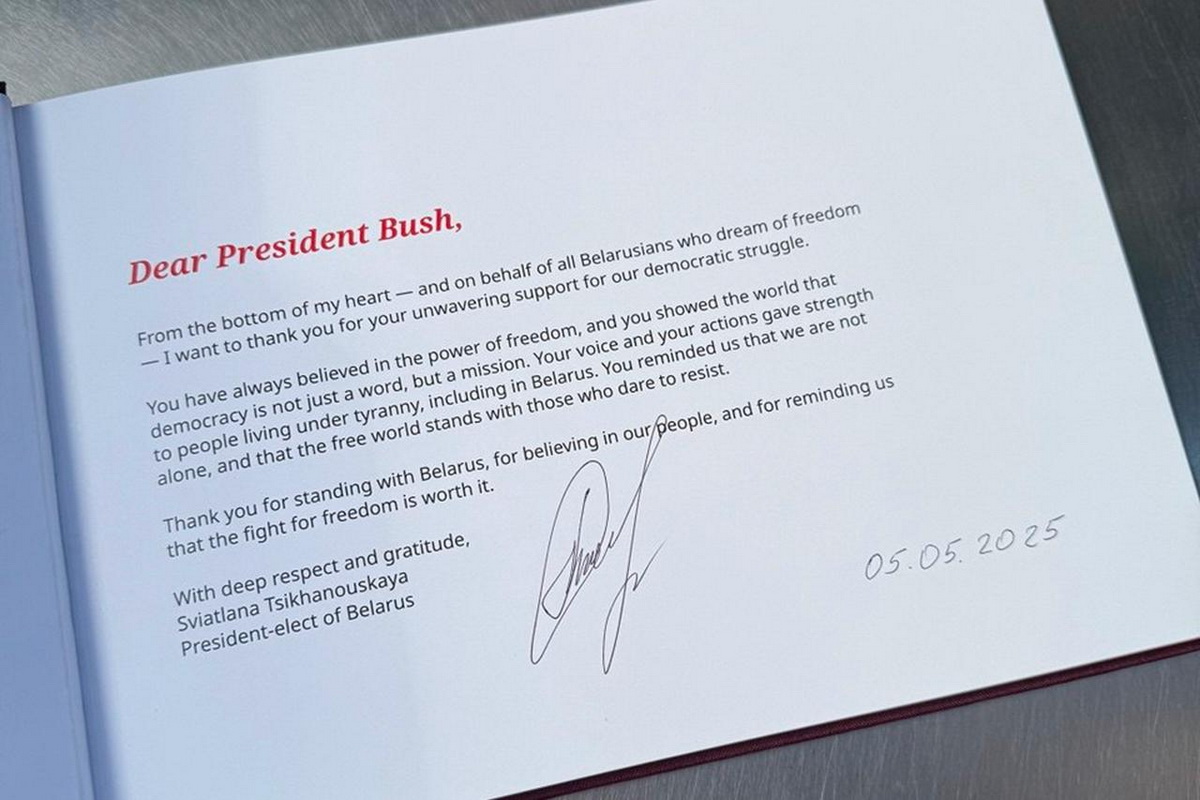 Dear President Bush,
From the bottom of my heart — and on behalf of all Belarusians who dream of freedom
— I want to thank you for your unwavering support for our democratic struggle.
You have always believed in the power of freedom, and you showed the world that
democracy is not just a word, but a mission. Your voice and your actions gave strength
to people living under tyranny, including in Belarus. You reminded us that we are not
alone, and that the free world stands with those who dare to resist.
Thank you for standing with Belarus, for believing in our people, and for reminding us
that the fight for freedom is worth it.
With deep respect and gratitude,
Sviatlana Tsikhanouskaya
President-elect of Belarus
05.05.2025